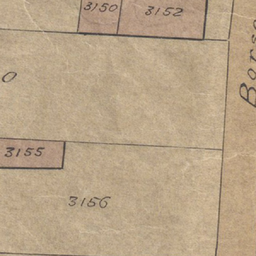 3150
3152
0
3155
3156